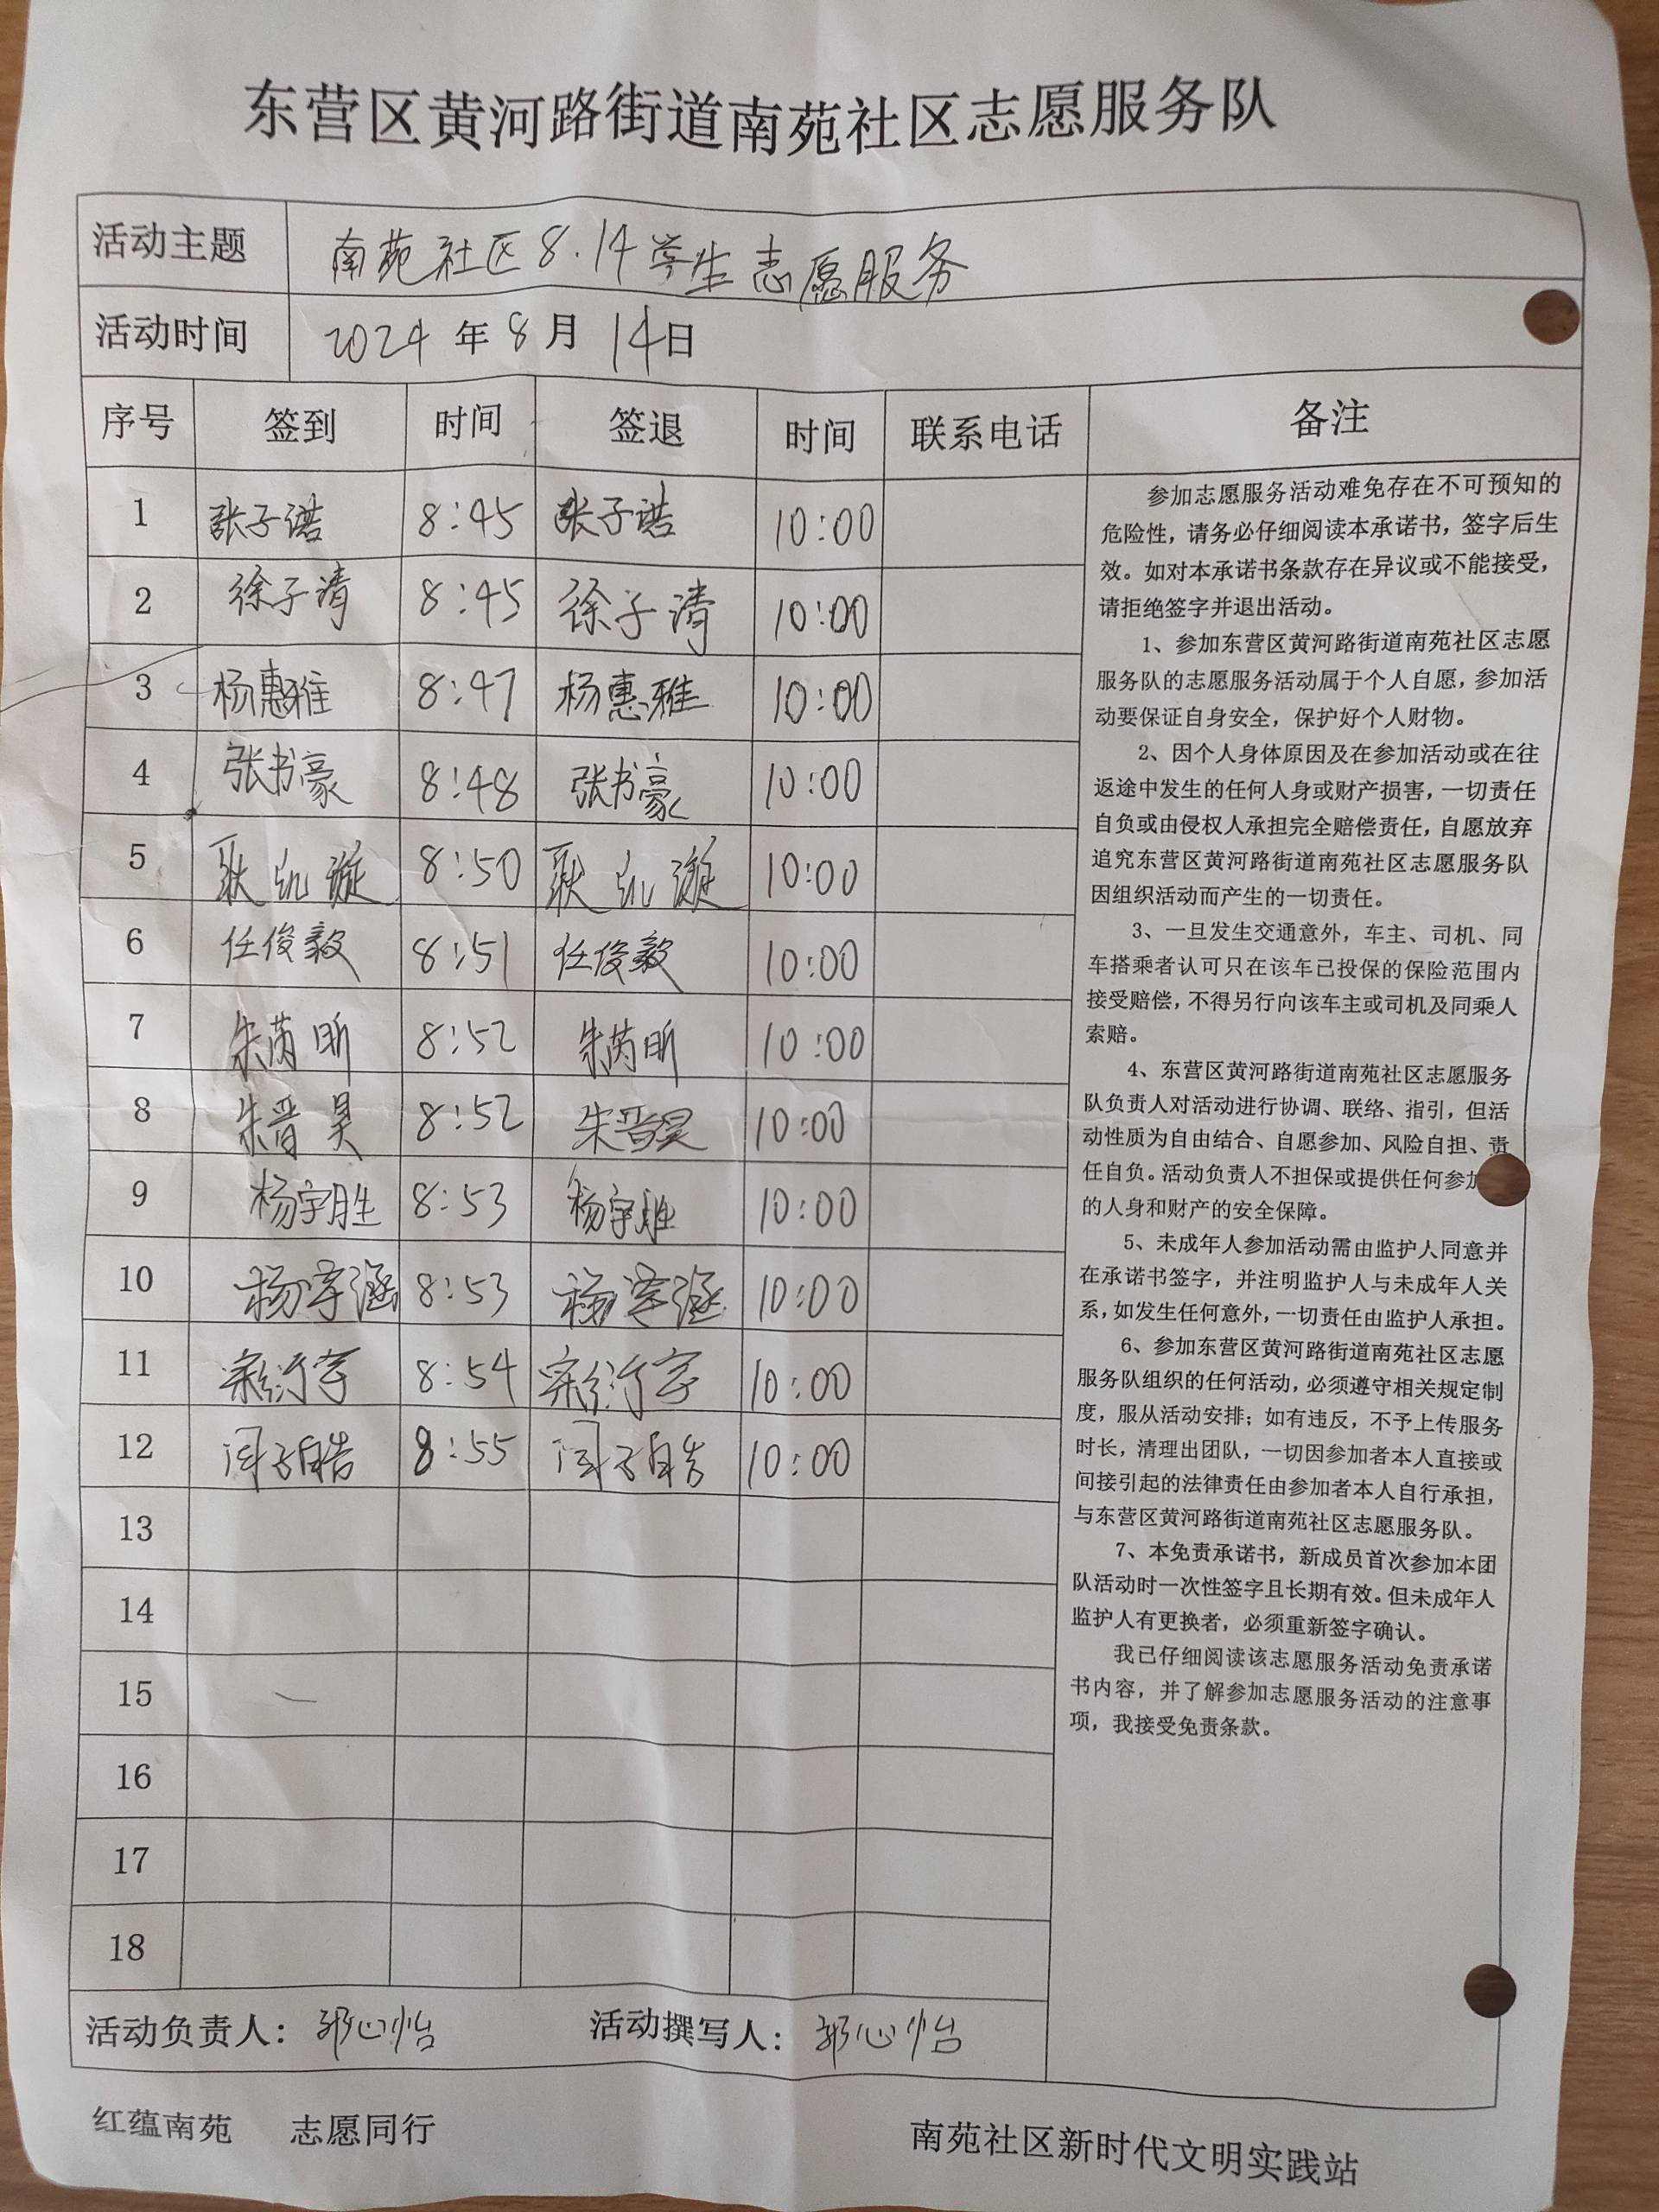 东营区黄河路街道南苑社区志愿服务队
活动主题 南苑社区8.14学生志愿服务
活动时间 2024年8月14日
序号 签到 时间 签退 时间 联系电话 备注
1 张子诺 8:45 张子诺 10:00
2 徐子清 8:45 徐子清 10:00
3 杨惠雅 8:47 杨惠雅 10:00
4 张书豪 8:48 张书豪 10:00
5 耿 8:50 耿 10:00
6 任俊毅 8:51 任俊毅 10:00
7 朱芮昕 8:52 朱芮昕 10:00
8 朱晋昊 8:52 朱晋昊 10:00
9 杨宇胜 8:53 杨宇胜 10:00
10 杨涵 8:53 杨涵 10:00
11 8:54 10:00
12 闫子皓 8:55 闫子皓 10:00
13
14
15
16
17
18
参加志愿服务活动难免存在不可预知的
危险性，请务必仔细阅读本承诺书，签字后生
效。如对本承诺书条款存在异议或不能接受，
请拒绝签字并退出活动。
1、参加东营区黄河路街道南苑社区志愿
服务队的志愿服务活动属于个人自愿，参加活
动要保证自身安全，保护好个人财物。
2、因个人身体原因及在参加活动或在往
返途中发生的任何人身或财产损害，一切责任
自负或由侵权人承担完全赔偿责任，自愿放弃
追究东营区黄河路街道南苑社区志愿服务队
因组织活动而产生的一切责任。
3、一旦发生交通意外，车主、司机、同
车搭乘者认可只在该车已投保的保险范围内
接受赔偿，不得另行向该车主或司机及同乘人
索赔。
4、东营区黄河路街道南苑社区志愿服务
队负责人对活动进行协调、联络、指引，但活
动性质为自由结合、自愿参加、风险自担、责
任自负。活动负责人不担保或提供任何参加
的人身和财产的安全保障。
5、未成年人参加活动需由监护人同意并
在承诺书签字，并注明监护人与未成年人关
系，如发生任何意外，一切责任由监护人承担。
6、参加东营区黄河路街道南苑社区志愿
服务队组织的任何活动，必须遵守相关规定制
度，服从活动安排；如有违反，不予上传服务
时长，清理出团队，一切因参加者本人直接或
间接引起的法律责任由参加者本人自行承担，
与东营区黄河路街道南苑社区志愿服务队。
7、本免责承诺书，新成员首次参加本团
队活动时一次性签字且长期有效。但未成年人
监护人有更换者，必须重新签字确认。
我已仔细阅读该志愿服务活动免责承诺
书内容，并了解参加志愿服务活动的注意事
项，我接受免责条款。
活动负责人：郭心怡 活动撰写人：郭心怡
红蕴南苑 志愿同行 南苑社区新时代文明实践站